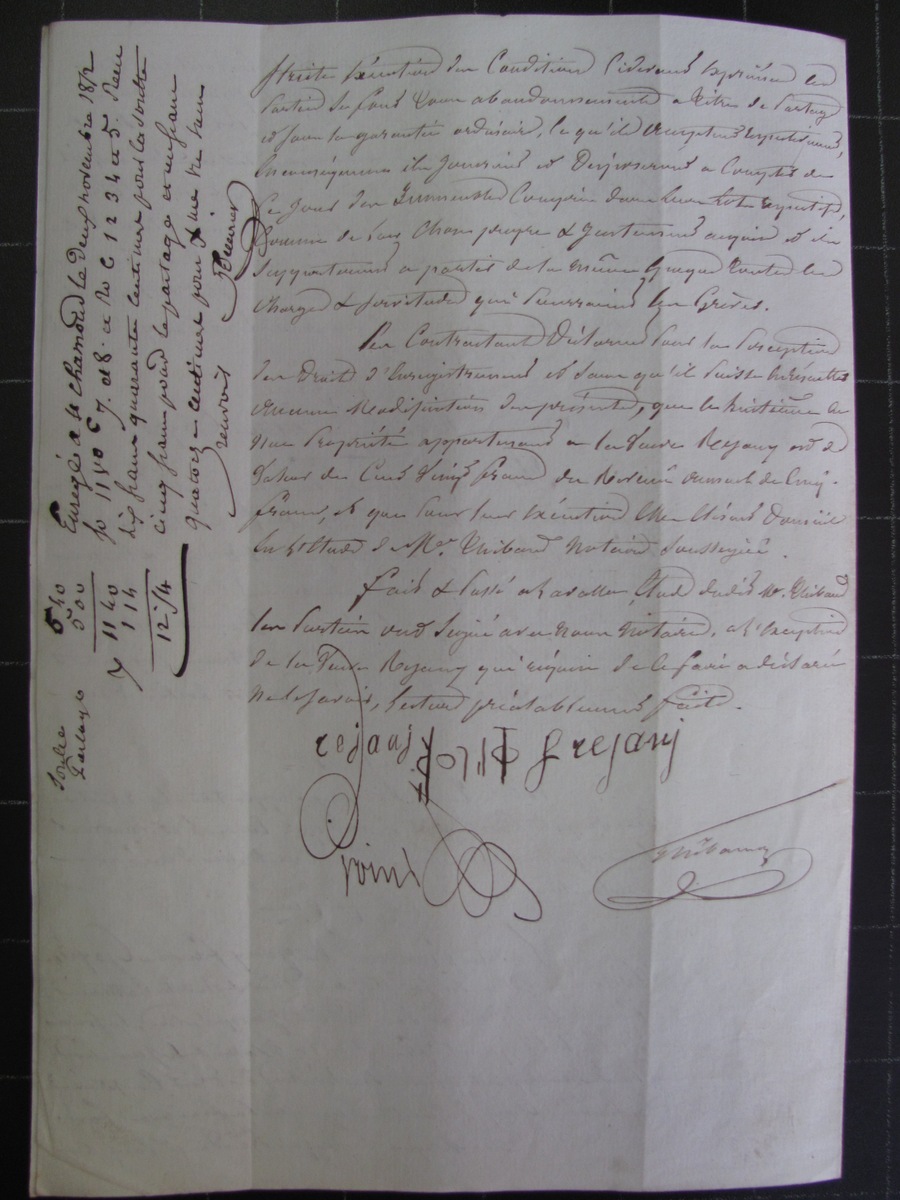 Stricte Exécution des Conditions Cidessus exprimées les
Parties se font tous abandonnements à titre de Partage
et sous la garantie ordinaire, ce qu'ils acceptent respectivement,
En conséquence ils Jouiront et Disposeront à Compter de
Ce Jour des Immeubles Compris dans leurs Lots respectifs,
Comme de leur Chose propre & Justement acquise et ils
Supporteront à partir de la même Epoque toutes les
Charges & servitudes qui Pourraient les Grèver.
Les Contractants Déclarent Pour la Perception
des Droits d'Enregistrement et sans qu'il Puisse en résulter
aucune Modification des présentes, que le huitième en
Nue Propriété appartenant à la Veuve Rejany est de
Valeur de Cent Vingt francs du Revenu annuel de Cinq
francs, et que Pour leur Exécution Elles Elisent Domicile
En l'Etude de Me Thibaud Notaire Soussigné.
Fait & Passé Etude dudit Me Thibaud
Les Parties ont Signé avec nous Notaire, à l'Exception
de la Veuve Rejany qui requise de le faire a déclaré
Ne le Savoir, Lecture préalablement faite.
rejany
g rejany
point
Thibaud
Enregé à St Chamond le Deux novembre 1872
fo 110 Vo C 7. et 8. et 20 C 1 2 3 4 et 5. Reçu
dix francs quarante centimes pour la soulte
cinq francs pour le partage et un franc
quatorze centimes pour
Soulte
Partage
5 00
11 40
1 14
12 54